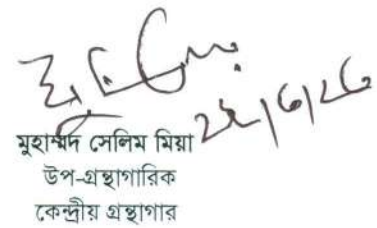 মুহাম্মদ সেলিম মিয়া
উপ-গ্রন্থাগারিক
কেন্দ্রীয় গ্রন্থাগার